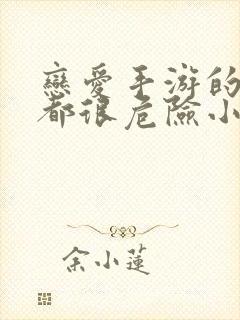 戀愛手游的
都很危險小
余小蓮